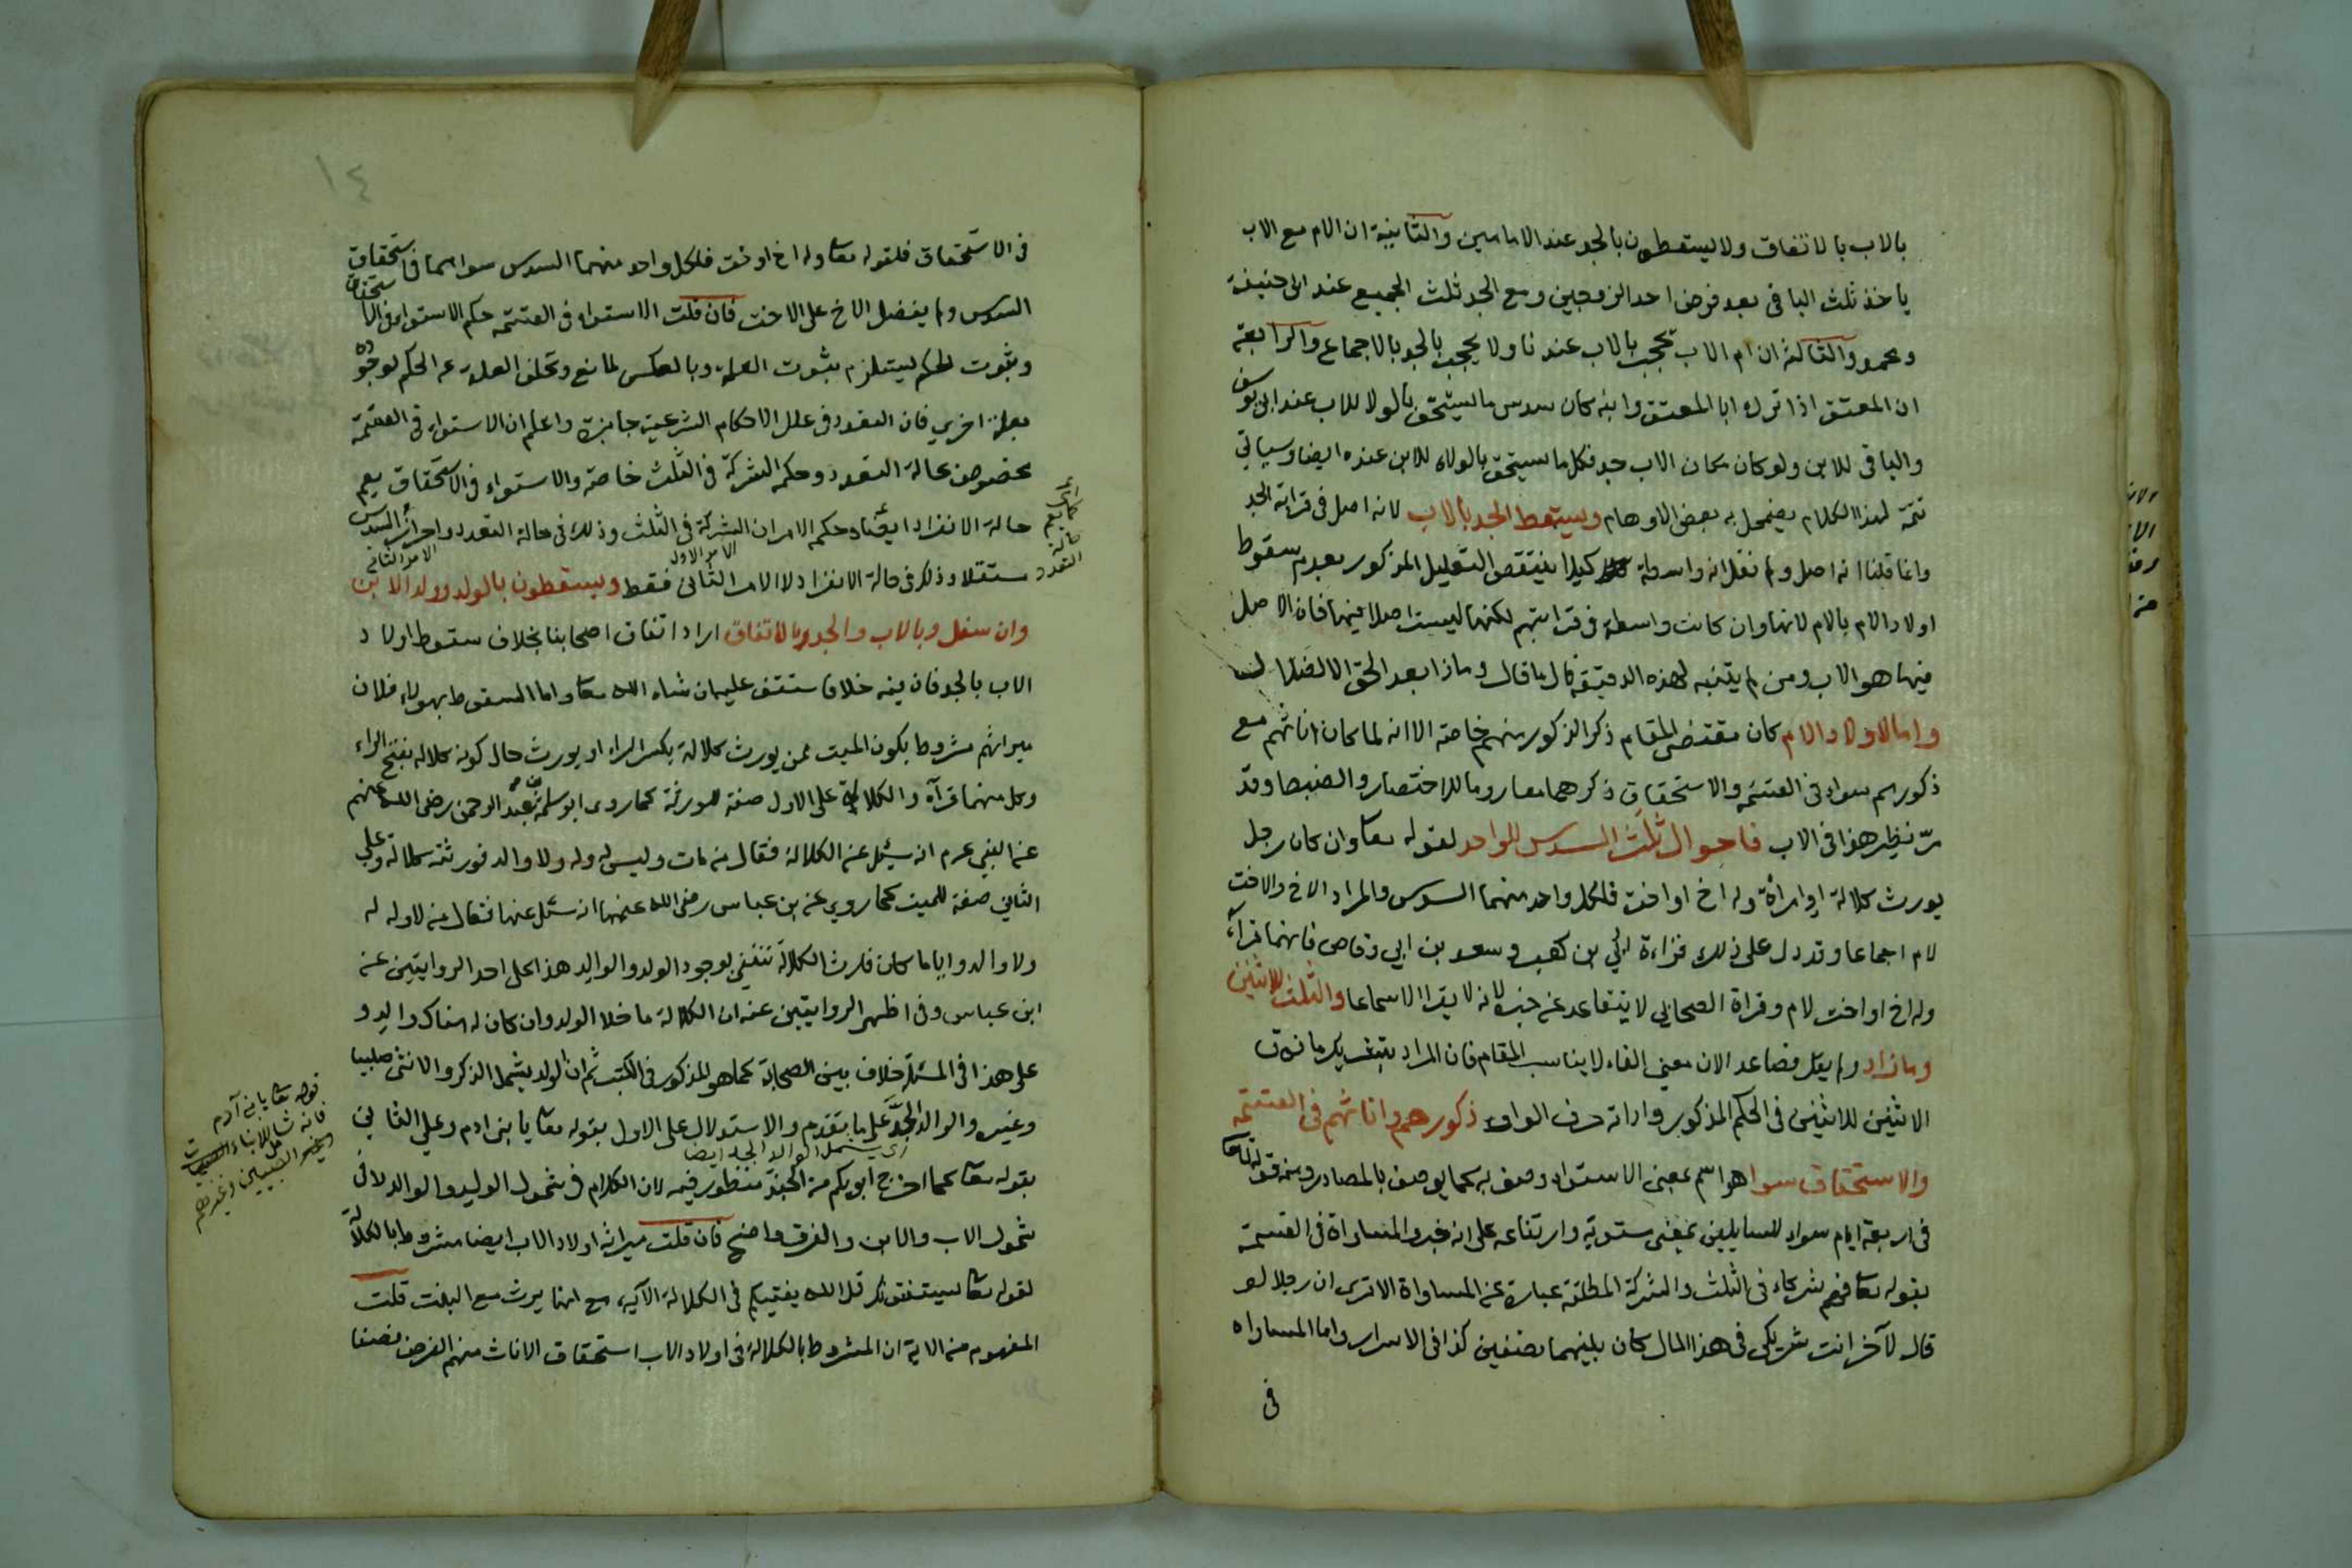 بالاب بالاتفاق ولا يسقطون بالجد عند الامامين والثانية ان الام مع الاب
ياخذ ثلث الباقي بعد فرض احد الزوجين ومع الجد ثلث الجميع عند ابى حنيفة
ومحمد والثالثة ان ام الاب تحجب بالاب عندنا ولا يحجب بالجد بالاجماع والرابعة
ان المعتق اذا ترك ابا المعتق وابنه كان سدس ما يستحق بالولا للاب عند ابى يوسف
والباقي للابن ولو كان مكان الاب جد فكل ما يستحق بالولاء للابن عنده ايضا وسياتي
تتمة لهذا الكلام يضمحل به بعض الاوهام ويسقط الجد بالاب لانه اصل فى قرابة الجد
وانما قلنا انه اصل ولم نقل انه واسطة كيلا ينتقض التعليل المذكور بعدم سقوط
اولاد الام بالام لانها وان كانت واسطة فى قرابتهم لكنها ليست اصلا فيها فان الاصل
فيها هو الاب ومن لم يتنبه لهذه الدقيقة قال ما قال وماذا بعد الحق الا الضلال
واما لاولاد الام كان مقتضى المقام ذكر الذكور منهم خاصة الا انه لما كان اناثهم مع
ذكورهم سواء فى القسمة والاستحقاق ذكرهما معا روما للاختصار والضبط وقد
مر نظير هذا فى الاب فاحوال ثلث السدس للواحد لقوله تعا وان كان رجل
يورث كلالة او امرأة وله اخ او اخت فلكل واحد منهما السدس والمراد الاخ والاخت
لام اجماعا وقد دل على ذلك قراءة ابي بن كعب و سعد بن ابي وقاص فانهما قرآ
وله اخ او اخت لام وقراة الصحابي لا يتقاعد عن خبره لانه لا يقرا الا سماعا والثلث للاثنين
وما زاد ولم يقل فصاعدا لان معنى الفاء لا يناسب المقام فان المراد تشريك ما فوق
الاثنين للاثنين فى الحكم المذكور واداته حرف الواو ذكورهم واناثهم فى القسمة
والاستحقاق سوا هو اسم بمعنى الاستواء وصف به كما يوصف بالمصادر ومنه قوله تعا
فى اربعة ايام سواء للسايلين بمعنى مستوية وارتفاعه على انه خبر والمساواة فى القسمة
بقوله تعا فهم شركاء فى الثلث والشركة المطلقة عبارة عن المساواة الا ترى ان رجلا لو
قال لآخر انت شريكى فى هذا المال كان بينهما نصفين كذا فى الاسرار واما المساواه
فى
١٤
فى الاستحقاق فلقوله تعا وله اخ او اخت فلكل واحد منهما السدس سواهما فى استحقاق
السدس ولم يفضل الاخ على الاخت فان قلت الاستواء فى القسمة حكم الاستواء فى الاستحقاق
وثبوت الحكم يستلزم ثبوت العلة وبالعكس لمانع وتخلف العلة عن الحكم لوجوده
بعلة اخرى فان التعدد فى علل الاحكام الشرعية جايزة واعلم ان الاستواء فى القسمة
مخصوص بحالة التعدد وحكمه الشركة فى الثلث خاصة والاستواء فى الاستحقاق يعم
حالة الانفراد ايضا وحكمه الامران الشركة فى الثلث وذلك فى حالة التعدد واحراز السدس
الامر الاول
الامر الثانى
كما يعم
حالة
التعدد
مستقلا وذلك فى حالة الانفراد لا الامر الثانى فقط ويسقطون بالولد وولد الابن
وان سفل وبالاب والجد بالاتفاق اراد اتفاق اصحابنا بخلاف سقوط اولاد
الاب بالجد فان فيه خلافا ستقف عليه ان شاء الله تعا واما السقوط بهولاء فلان
ميراثهم مشروط بكون الميت ممن يورث كلالة بكسر الراء او يورث حال كونه كلاله بفتح الراء
وكل منهما قرآة والكلالة على الاول صفة للورثة كما روى ابو سلمة بن عبد الرحمن رضى الله عنهم
عن النبي عرم انه سئل عن الكلالة فقال من مات وليس له ولد ولا والد فورثته كلالة وعلي
الثاني صفة للميت كما روي عن ابن عباس رضى الله عنهما انه سئل عنها فقال من لا ولد له
ولا والد وايا ما كان فارث الكلالة تنتفي بوجود الولد والوالد هذا على احد الروايتين عن
ابن عباس وفى اظهر الروايتين عنه ان الكلالة ما خلا الولد وان كان له هناك والد و
على هذا فى المسئلة خلاف بين الصحابة كما هو المذكور فى الكتب ثم ان الولد يشمل الذكر والانثى صلبيا
وغيره والوالد الجد على ما تقدم والاستدلال على الاول بقوله تعا يا بنى ادم وعلي الثاني
اى يشمل الوالد الجد ايضا
بقوله تعا كما اخرج ابويكم من الجنة منظور فيه لان الكلام فى شمول الوليد والوالد لا فى
شمول الاب والابن والفرق واضح فان قلت ميراث اولاد الاب ايضا مشروط بالكلالة
لقوله تعا يستفتونك قل الله يفتيكم فى الكلالة الآية مع انها يرث مع البنت قلت
المفهوم من الاية ان المشروط بالكلالة فى اولاد الاب استحقاق الاناث منهم الفرض نصفا
قوله تعا يا بنى آدم
فانه شامل للابناء
وغيرهم